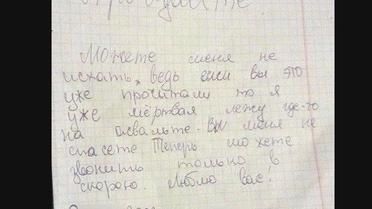 Можете меня не
искать, ведь если вы это
уже прочитали то я
уже мёртвая лежу где-то
на асвальте. Вы меня не
спасете Теперь можете
звонить только в
скорою. Люблю вас!